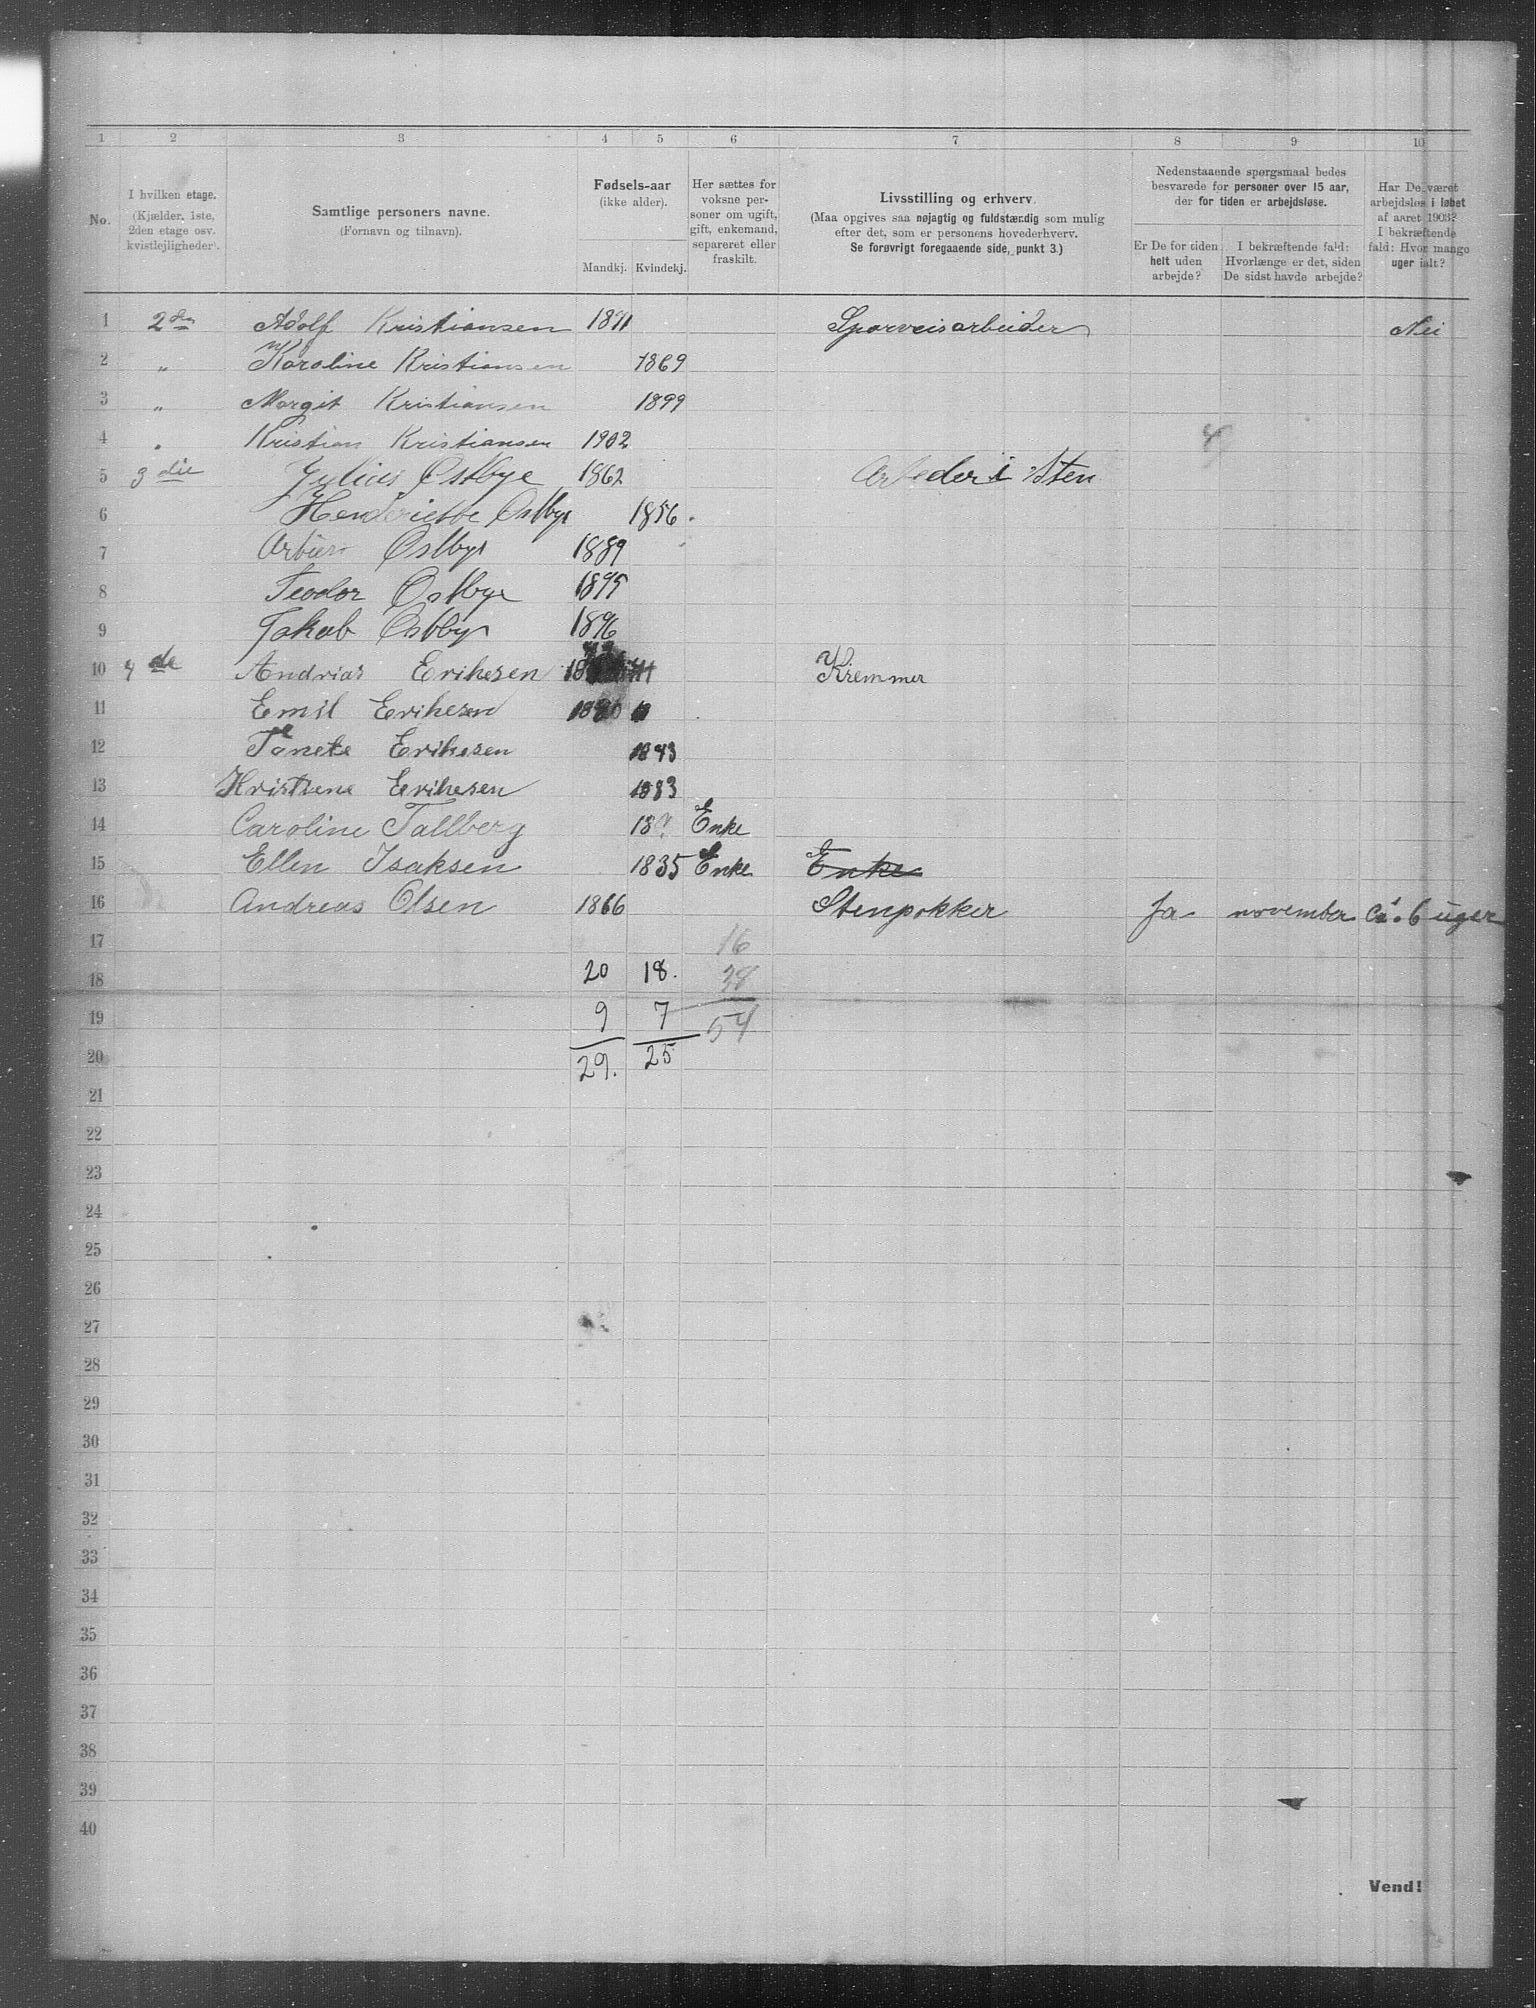 1 2 3 4 5 6 7 8 9 10
No.
I hvilken etage.
(Kjælder, 1ste, 2den etage osv. kvistlejligheder).
Samtlige personers navne.
(Fornavn og tilnavn).
Fødsels-aar
(ikke alder).
Mandkj. Kvindekj.
Her sættes for voksne personer om ugift, gift, enkemand, separeret eller fraskilt.
Livsstilling og erhverv.
(Maa opgives saa nøjagtig og fuldstændig som mulig efter det, som er personens hovederhverv.
Se forøvrigt foregaaende side, punkt 3.)
Nedenstaaende spørgsmaal bedes besvarede for personer over 15 aar, der for tiden er arbejdsløse.
Er De for tiden helt uden arbejde?
I bekræftende fald: Hvorlænge er det, siden De sidst havde arbejde?
Har De været arbejdsløs i løbet af aaret 1903? I bekræftende fald: Hvor mange uger ialt?
1 2den Adolf Kristiansen 1871 Sporveisarbeider Nei
2 " Karoline Kristiansen 1869
3 " Margit Kristiansen 1899
4 " Kristian Kristiansen 1902
5 3die Julius Østbye 1862 Arbeder i Sten
6 Henderiette Østbye 1856
7 Østbye 1889
8 Teodor Østbye 1895
9 Jakob Østbye 1896
10 4de Andrias Erihesen 18 Kremmer
11 Emil Erihesen 1880
12 Erihesen 1843
13 Kristiene Erihesen 1883
14 Caroline Tallberg 18 Enke
15 Ellen Isaksen 1835 Enke Enke
16 Andreas Olsen 1866 Stenpokker Ja november Ca. 6 uger
17 16
18 20 18. 38
19 9 7 54
20 29. 25
21
22
23
24
25
26
27
28
29
30
31
32
33
34
35
36
37
38
39
40
Vend!